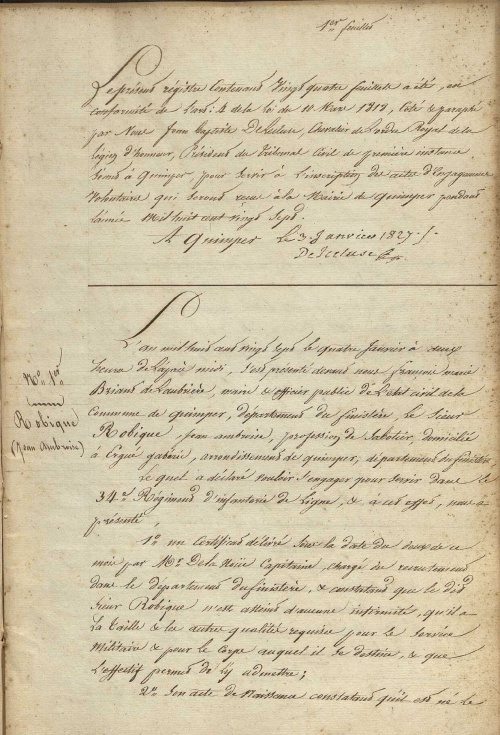 1er feuillet
Le présent régistre Contenant Vingt quatre feuillets a été, en
conformité de l'art: 4 de la loi du 10 Mars 1818, Coté & paraphé
par Nous Jean Baptiste Delecluse, Chevalier de l'ordre Royal de la
Légion d'honneur, Président du Tribunal Civil de première instance
séant à Quimper, pour servir à l'inscription des actes d'Engagement
Volontaire qui seront reçus à la Mairie de Quimper pendant
l'année Mil huit cent vingt Sept.
A Quimper Le 3 Janvier 1827
Delecluse
No. 1er
Robique
(Jean Ambroise)
L'an mil huit cent vingt sept le quatre Janvier à deux
heures de l'après midi, s'est présenté devant nous françois marie
Briand de Laubrière, maire & officier public de l'état civil de la
Commune de quimper, département du finistère, le Sieur
Robique, Jean ambroise, profession de Sabotier, domicilié
à Ergué gabéric, arrondissement de quimper, département du finistère
Lequel a déclaré vouloir s'engager pour servir dans le
34e Régiment d'infanterie de Ligne, & à cet effet, nous a
présenté,
1o un Certificat délivré sous la date du deux de ce
mois par Mr. De la Haÿe Capitaine, chargé du recrutement
dans le département du finistère, & constatant que le dit
Sieur Robique n'est atteint d'aucune infirmité, qu'il a
la taille & les autres qualités requises pour le service
Militaire & pour le Corps auquel il se destine, & que
l'effectif permet de l'y admettre;
2o Son acte de Naissance constatant qu'il est né le